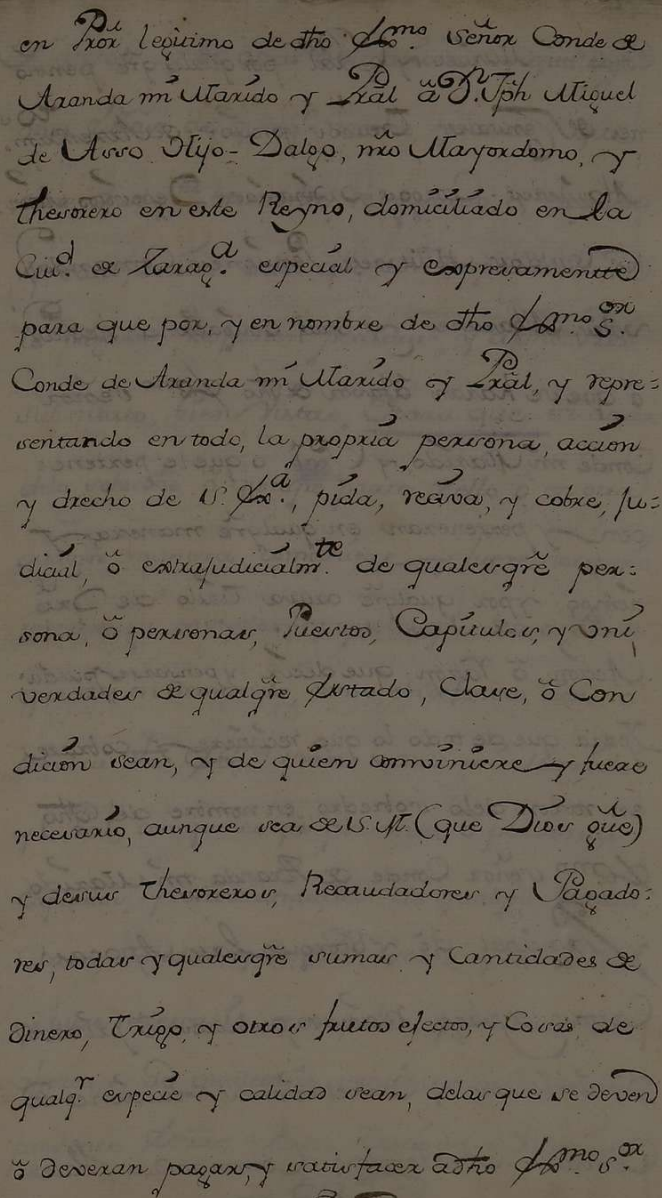 en Pror̃ legitimo de dho Exmo. Señor Conde de
Aranda mi Marido y Pral ã Dn. Jph Miguel
de Asso Hijo-Dalgo, nr̃o Mayordomo, y
thesorero en este Reyno, domiciliado en la
Ciud. de Zarag.a especial y expresamente
para que por, y en nombre de dho Exmo. Sor.
Conde de Aranda mi Marido y Pral, y repre=
sentando en todo, la propria persona, acción
y drecho de S. Exa., pida, reciva, y cobre, ju=
dicial, õ extrajudicialm.te de qualesqr̃e per=
sona, õ personas, Puestos, Capitulos, y uni
versdades de qualqr̃e Estado, Clase, õ Con
dición sean, y de quien conviniere y fuere
necesario, aunque sea de S. M. (que Dios gũe)
y desus thesoreros, Recaudadores y Pagado=
res, todas y qualesqr̃e sumas y Cantidades de
dinero, Trigo, y otros frutos efectos, y Cosas de
qualqr. especie y calidad sean, delas que se deven
õ deveran pagar, y satisfacer adho Exmo. Sor.